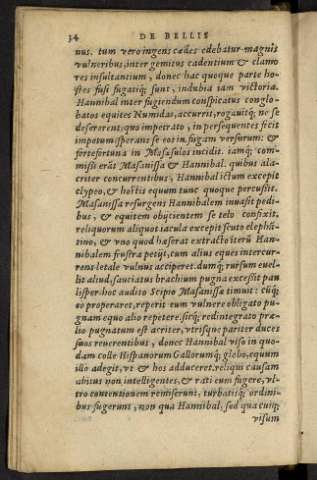 34 DE BELLIS
nus. tum vero ingens cædes edebatur magnis
vulneribus, inter gemitus cadentium & clamo
res insultantium, donec hac quoque parte ho-
stes fusi fugatiq; sunt, indubia iam victoria.
Hannibal inter fugiendum conspicatus conglo-
batos equites Numidas, accurrit, rogauitq; ne se
desererent: quo impetrato, in persequentes fecit
impetum, sperans se eos in fugam versurum: &
forte fortuna in Masasulos incidit. iamq; com-
missi erāt Masanissa & Hannibal. quibus ala-
criter concurrentibus, Hannibal ictum excepit
clypeo, & hostis equum tunc quoque percussit.
Masanissa resurgens Hannibalem inuasit pedi-
bus, & equitem obijcientem se telo confixit,
reliquorum aliquot iacula excepit scuto elephā-
tino, & vno quod hæserat extracto iterū Han-
nibalem frustra petijt, tum alius eques intercur-
rens letale vulnus acciperet. dumq; rursum euel-
lit aliud, sauciatus brachium pugna excessit pau
lisper. hoc audito Scipio Masanissæ timuit: cūq;
eo properaret, reperit eum vulnere obligato pu-
gnam equo alio repetere. sicq; redintegrato præ-
lio pugnatum est acriter, vtrisque pariter duces
suos reuerentibus, donec Hannibal viso in quo-
dam colle Hispanorum Gallorumq; globo, equum
illo adegit, vt & hos adduceret. reliqui causam
abitus non intelligentes, & rati eum fugere, vl-
tro contentionem remiserunt, turbatisq; ordini-
bus fugerunt, non qua Hannibal, sed qua cuiq;
visum